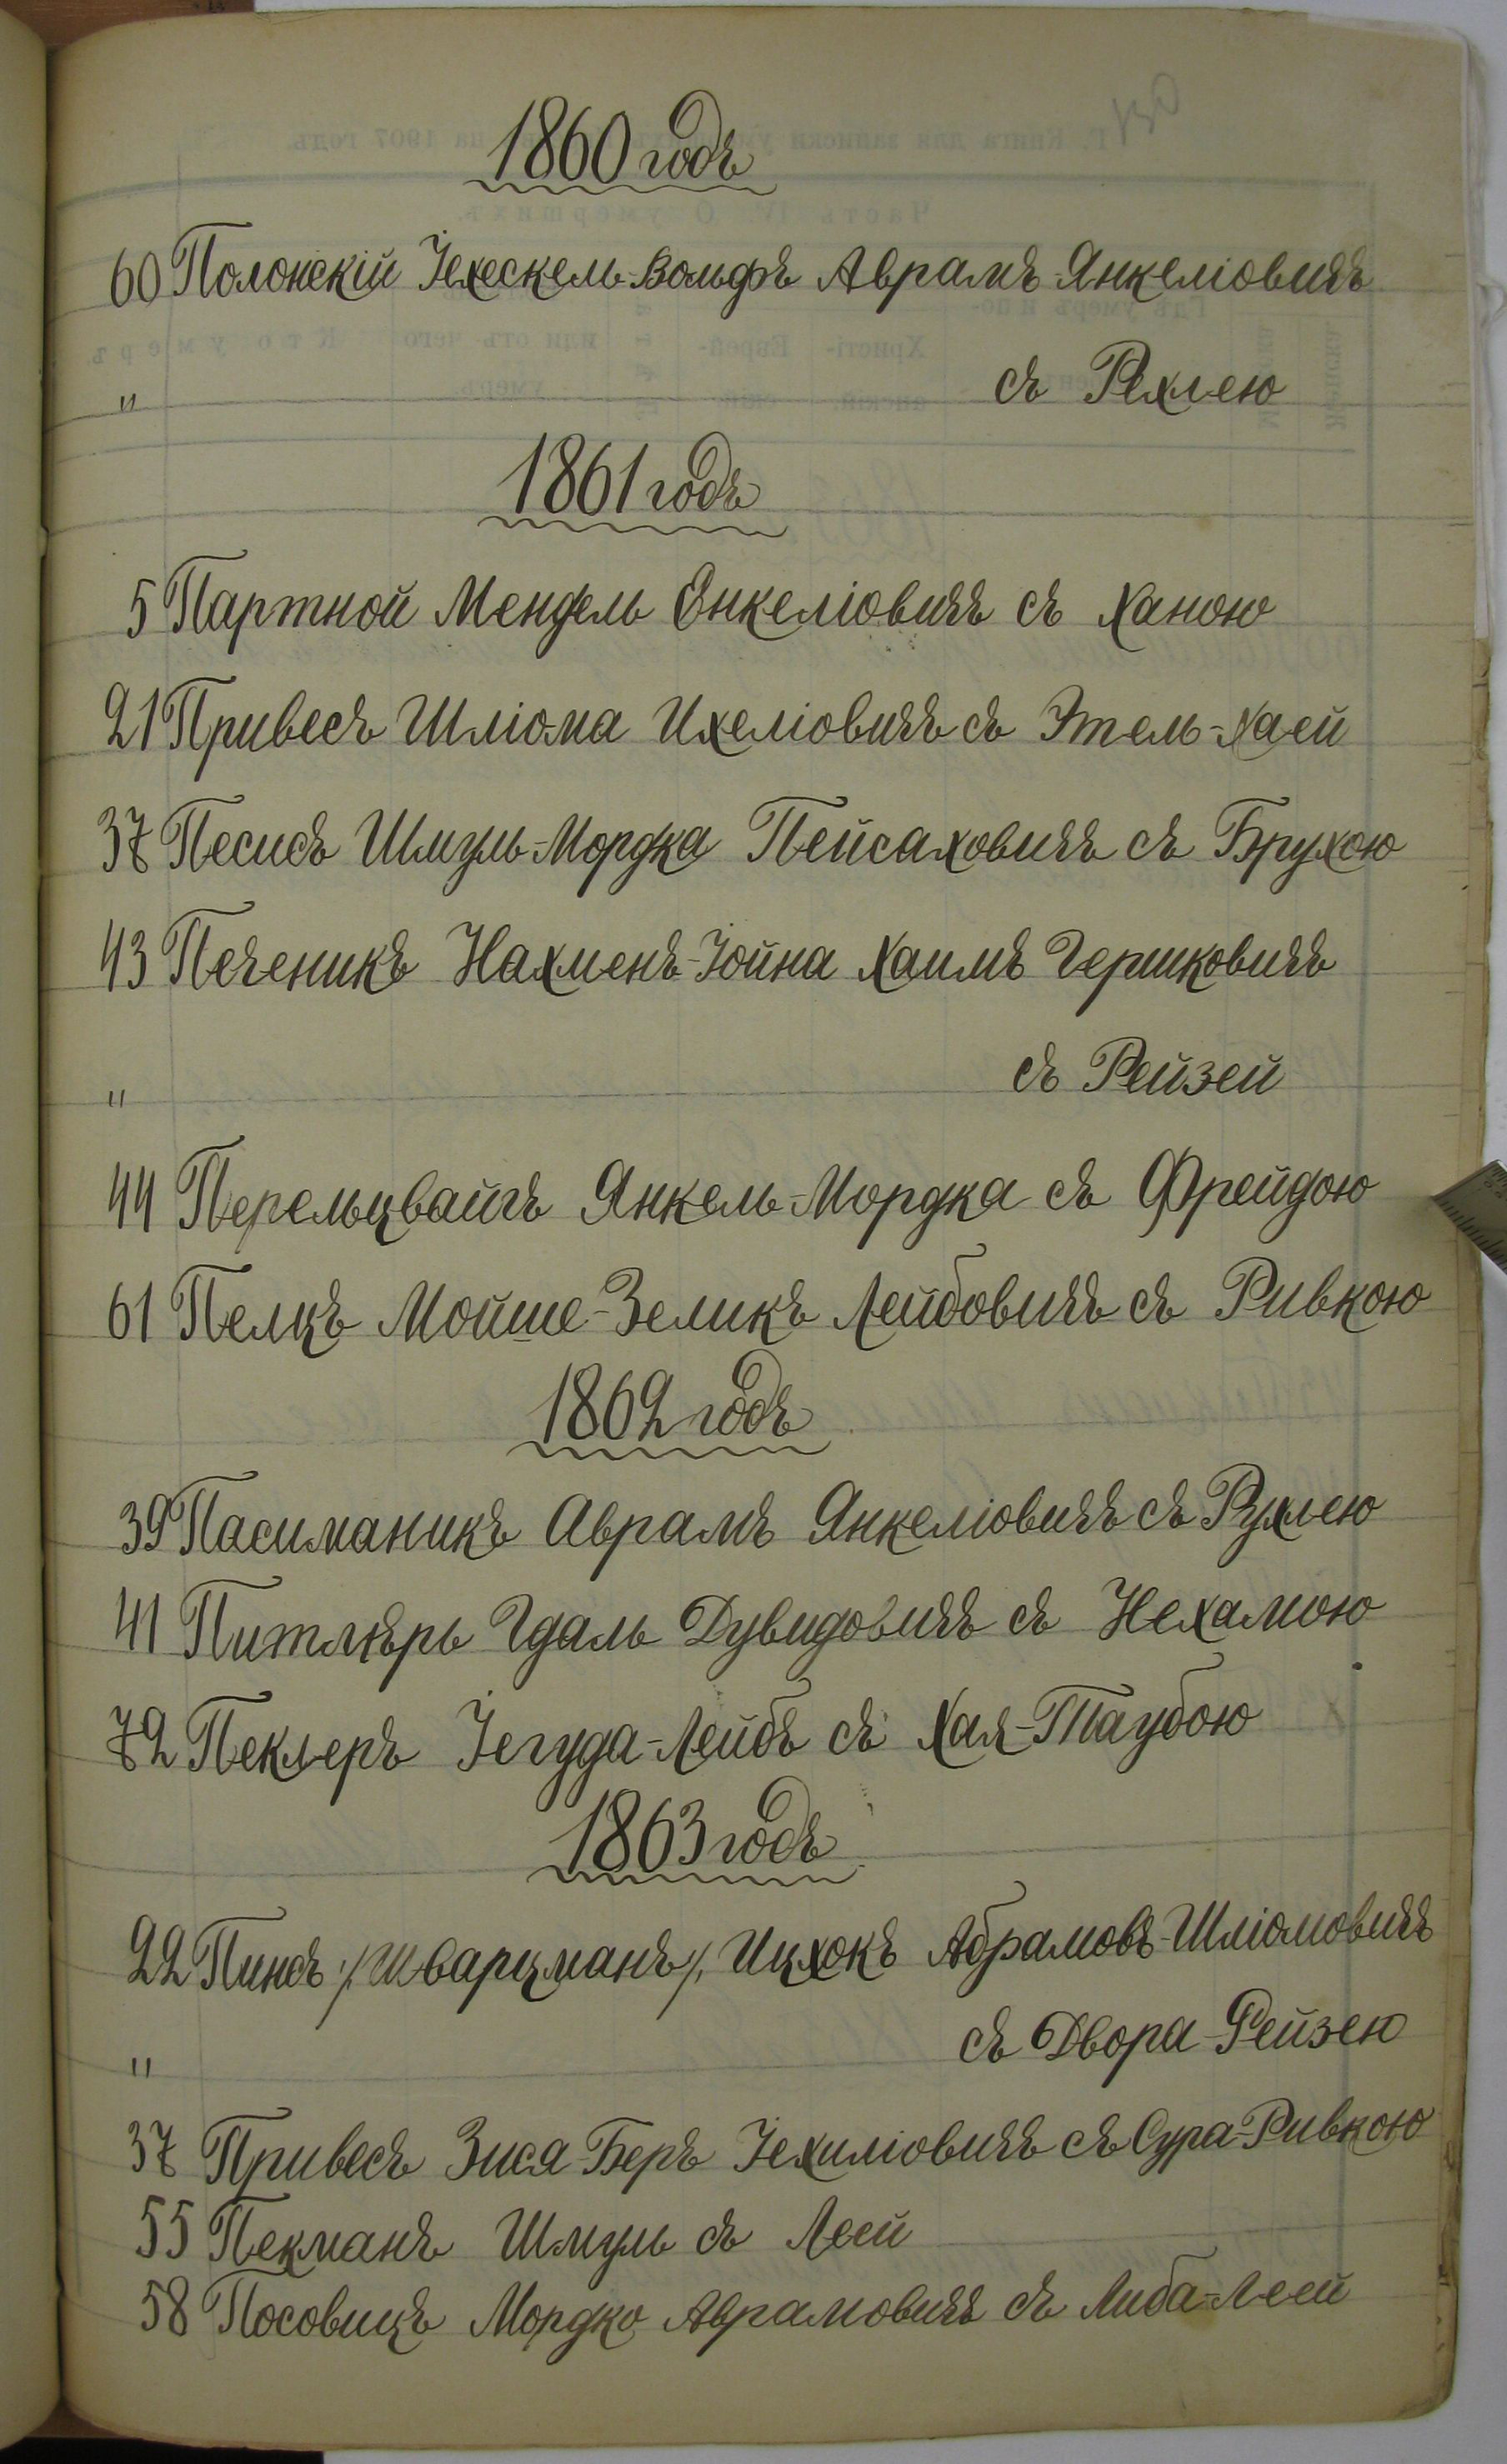 1860 годъ
60 Полонскій Іехескель-Вольфъ Аврамъ-Янкеліовичъ
" съ Рехлею
1861 годъ
5 Партной Мендель Енкеліовичъ съ Ханою
21 Привесъ Шліома Ихеліовичъ съ Этель-Хаей
37 Песисъ Шмуль-Мордка Пейсаховичъ съ Брухою
43 Печеникъ Нахменъ-Іойна Хаимъ Гершковичъ
" съ Рейзей
44 Перельцвайгъ Янкель-Мордка съ Фрейдою
61 Пелцъ Мойше-Зеликъ Лейбовичъ съ Ривкою
1862 годъ
39 Пасиманикъ Аврамъ Янкеліовичъ съ Рухлею
41 Питлѣръ Гдаль Дувидовичъ съ Нехамою
72 Пеклеръ Іегуда-Лейбъ съ Хая-Таубою
1863 годъ
22 Пинсъ /Шварцманъ/ Ицхокъ Абрамовъ-Шліомовичъ
" съ Двора-Рейзею
37 Привесъ Зися-Беръ Іехиліовичъ съ Сура-Ривкою
55 Пекманъ Шмуль съ Леей
58 Посовицъ Мордко Аврамовичъ съ Либа-Леей